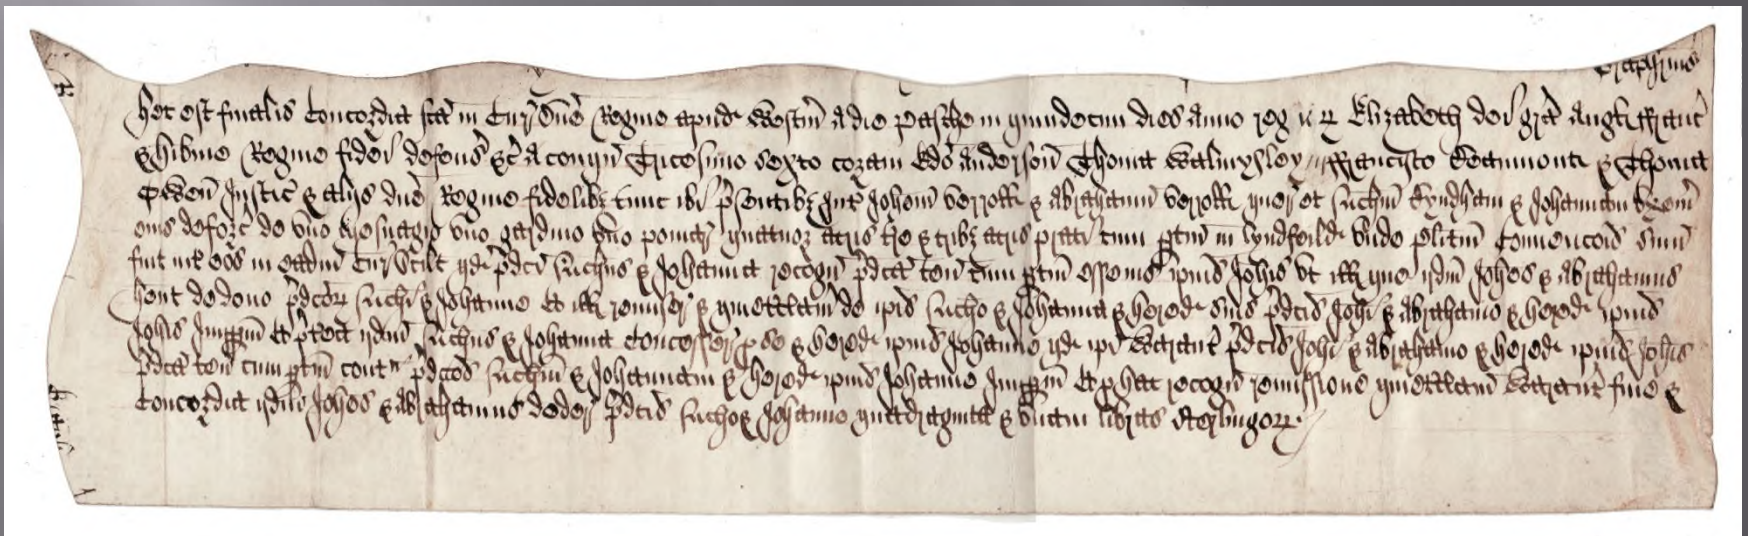 Hec est finalis concordia fca in Cur dne Regine apud Westm a die Pasche in quindecim dies anno regnor Elizabeth dei gra Angl ffranc
& Hibnie Regine fidei defens &c a conqu Tricesimo sexto coram Edo Anderson Thoma Walmysley ffrancisco Beaumont & Thoma
Owen Justic & aliis dne Regine fidelibz tunc ibi psentibz Int Johem & Abrahamum quer et & Johannam
eius deforc de uno mesuagio uno gardino uno pomar quatuor acris tre & tribz acris prati cum ptin in Lyndfeilde Unde plitm convencois sum
fuit int eos in eadm Cur Scilt qd pdci & Johanna recogn pdca ten cum ptin esse ius ipius Johis ut ill que iidm Johes & Abrahamus
hent de dono pdcor & Johanne Et ill remiser & quietclam de ipis & Johanna & hered suis pdcis Johi & Abrahamo & hered ipius
Johis Imppm Et ptea iidm & Johanna concesser p se & hered ipius Johanne qd ipi Warant pdcis Johi & Abrahamo & hered ipius Johis
pdca ten cum ptin cont pdcos & Johannam & hered ipius Johanne Imppm Et p hac recogn remissione quietclam Warant fine &
Concordia iidm Johes & Abrahamus deder pdcis & Johanne quadraginta & unam libras sterlingor